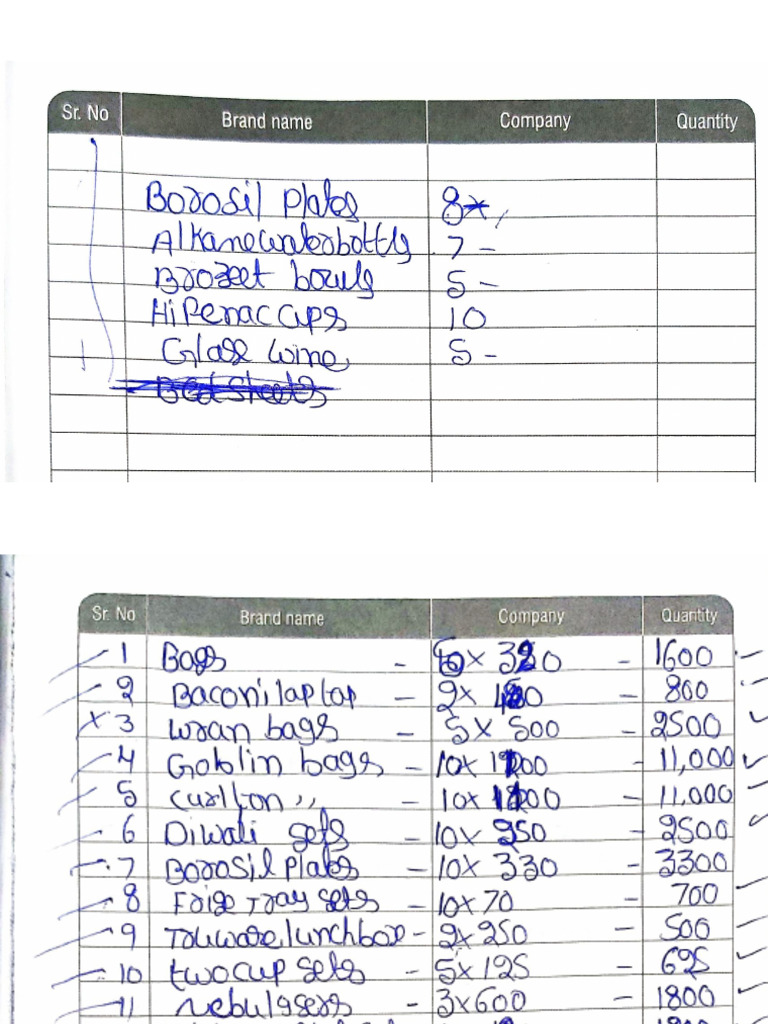 Sr. No Brand name Company Quantity
Borosil Plates 8
Alkanewaterbottls 7 -
Brozeet bowls 5 -
Hi Penac cups 10
Glass wine 5 -
Bed Sheets
Sr. No Brand name Company Quantity
1 Bags - x 320 - 1600
2 Baconi laptop - 2x - 800
x 3 wran bags - 5 x 500 - 2500
4 Goblin bags - 10x 1100 - 11,000
5 Curlton ,, - 10x 1100 - 11,000
6 Diwali sets - 10x 250 - 2500
7 Borosil Plates - 10x 330 - 3300
8 Frige Tray sets - 10x70 - 700
9 lunchbox - 2x250 - 500
10 two cup sets - 5x125 - 625
11 Nebulasers - 3x600 - 1800